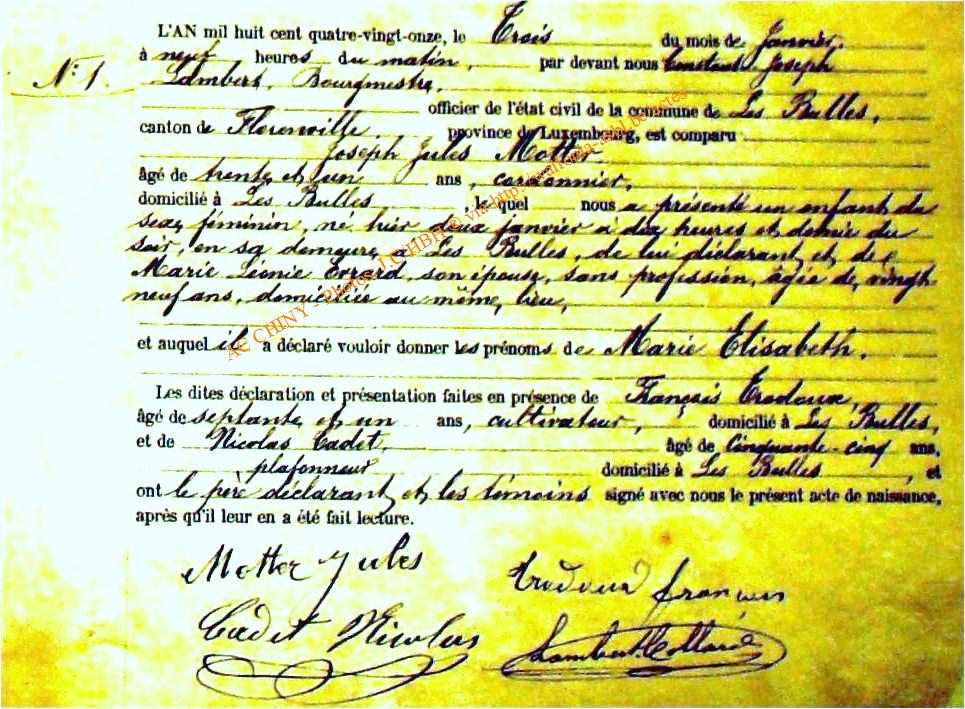 L'AN mil huit cent quatre-vingt-onze, le Trois du mois de Janvier.
à neuf heures du matin, par devant nous Constant Joseph
N° 1. Lambert, Bourgmestre,
officier de l'état civil de la commune de Les Bulles,
canton de Florenville, province de Luxembourg, est comparu
Joseph Jules Motter
âgé de trente et un ans, cordonnier,
domicilié à Les Bulles, lequel nous a présenté un enfant du
sexe féminin, né hier deux janvier à dix heures et demie du
soir, en sa demeure à Les Bulles, de lui déclarant et de
Marie Léonie Evrard, son épouse, sans profession, âgée de vingt
neuf ans, domiciliée au même lieu,
et auquel il a déclaré vouloir donner les prénoms de Marie Elisabeth.
Les dites déclaration et présentation faites en présence de François Trodoux,
âgé de septante et un ans, cultivateur, domicilié à Les Bulles,
et de Nicolas Cadet, âgé de Cinquante-cinq ans,
plafonneur domicilié à Les Bulles, et
ont le père déclarant et les témoins signé avec nous le présent acte de naissance,
après qu'il leur en a été fait lecture.
Motter Jules Trodoux françois
Cadet Nicolas Lambert Collard
AC CHINY - Photos J.C HBH © via http://